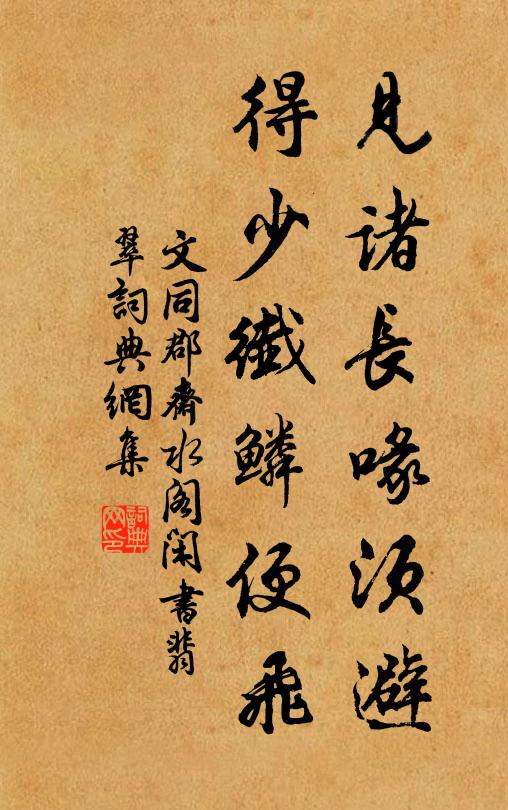 見諸長喙須避
得少纖鱗便飛
文同郡齋水阁閑書翡
翠詞典網集
詞典
网印